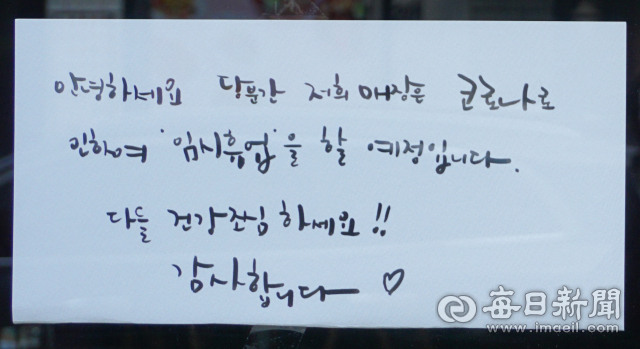 안녕하세요 당분간 저희 매장은 코로나로
인하여 '임시휴업'을 할 예정입니다.
다들 건강조심 하세요!!
감사합니다 ♡
每日新聞
www.imaeil.com